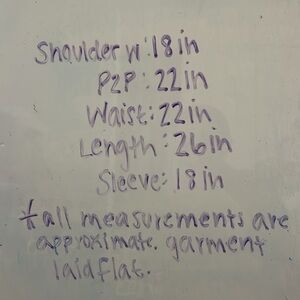 Shoulder w: 18in
P2P: 22in
Waist: 22in
Length: 26in
Sleeve: 18in
* all measurements are
approximate. garment
laid flat.